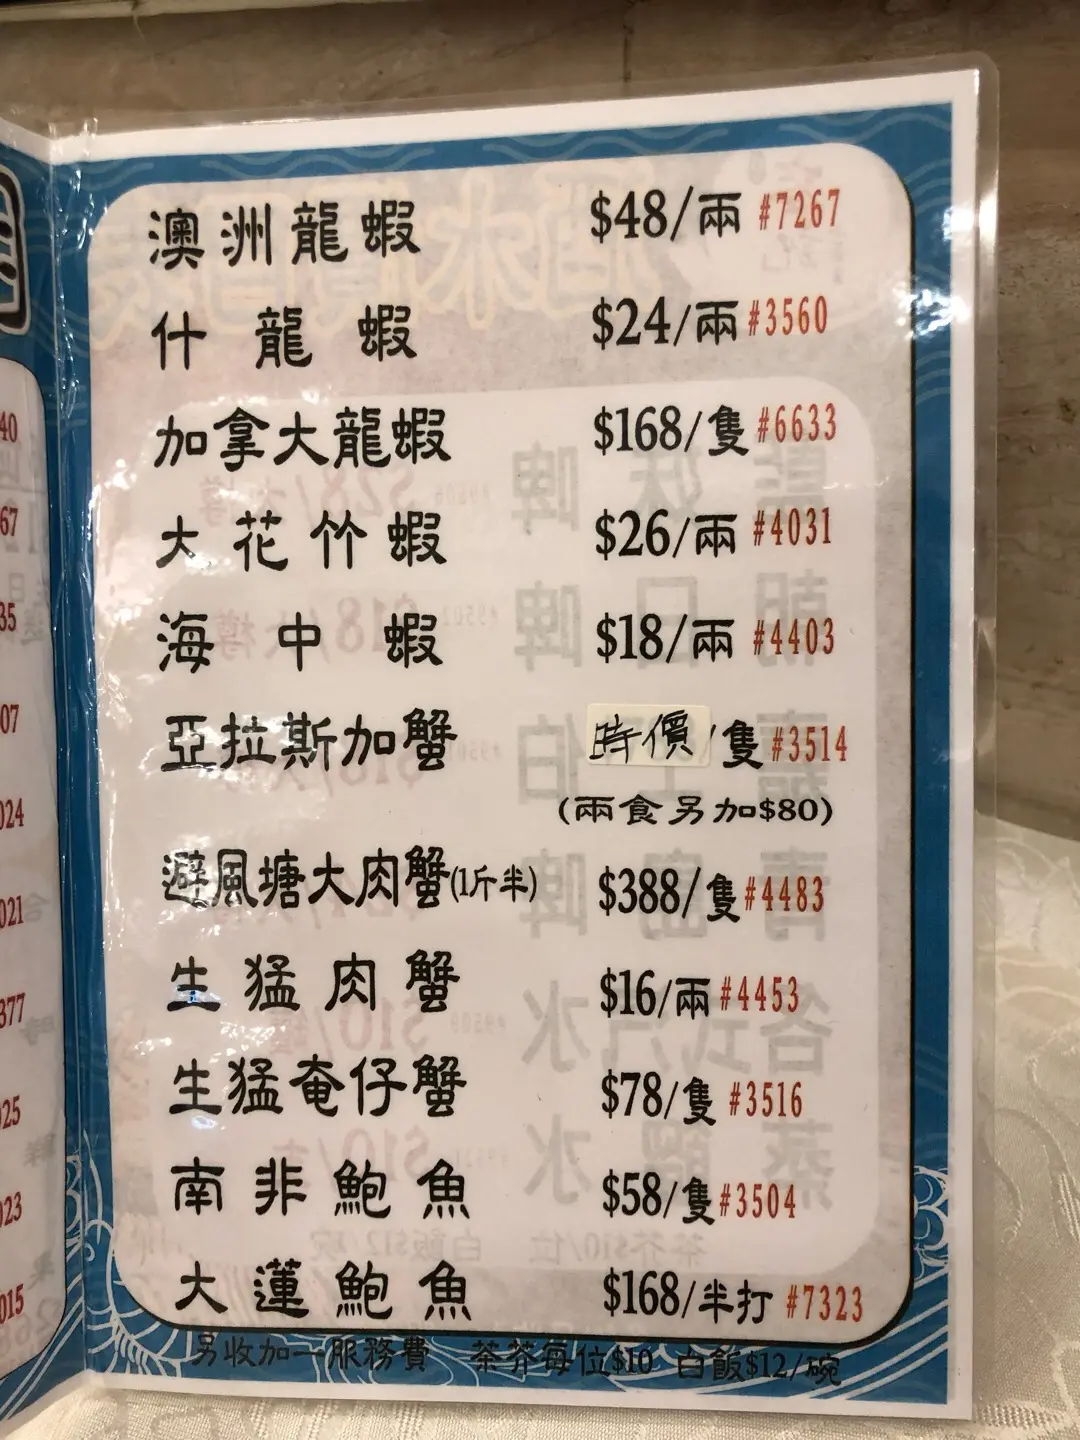 澳洲龍蝦 $48/兩 #7267
什龍蝦 $24/兩 #3560
加拿大龍蝦 $168/隻 #6633
大花竹蝦 $26/兩 #4031
海中蝦 $18/兩 #4403
亞拉斯加蟹 時價/隻 #3514
(兩食另加$80)
避風塘大肉蟹(1斤半) $388/隻 #4483
生猛肉蟹 $16/兩 #4453
生猛奄仔蟹 $78/隻 #3516
南非鮑魚 $58/隻 #3504
大蓮鮑魚 $168/半打 #7323
另收加一服務費 茶芥每位$10 白飯$12/碗